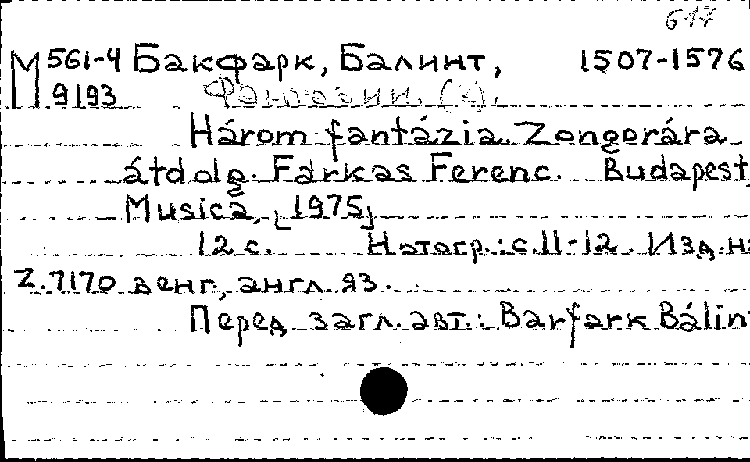 617
М 561-4 Бакфарк, Балинт, 1507-1576
9193 Фантазии.
Három fantázia. Zongorára
átdolg. Farkas Ferenc. Budapest,
Musica, [1975]
12 с. Нотогр.: с. 11-12. Изд. на
Z.7170 венг., англ. яз.
Перед загл. авт.: Barfark Bálint